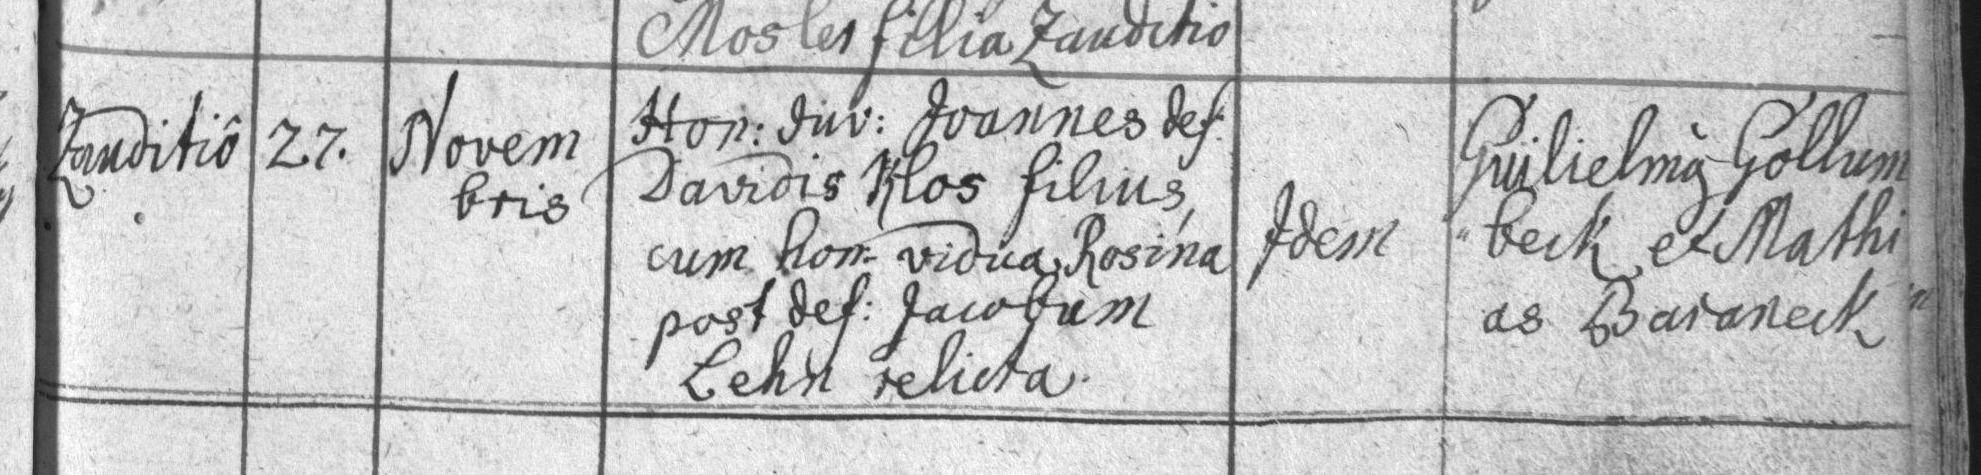 Mosler filia Zauditio
Zauditiô 27. Novem
bris
Hon: Juv: Joannes def:
Davidis Klos filius,
cum hon: vidua Rosina
post def: Jacobum
Lehn relicta.
Idem
Guilielmq̀ Gollum
"beck et Mathi
as Baraneck